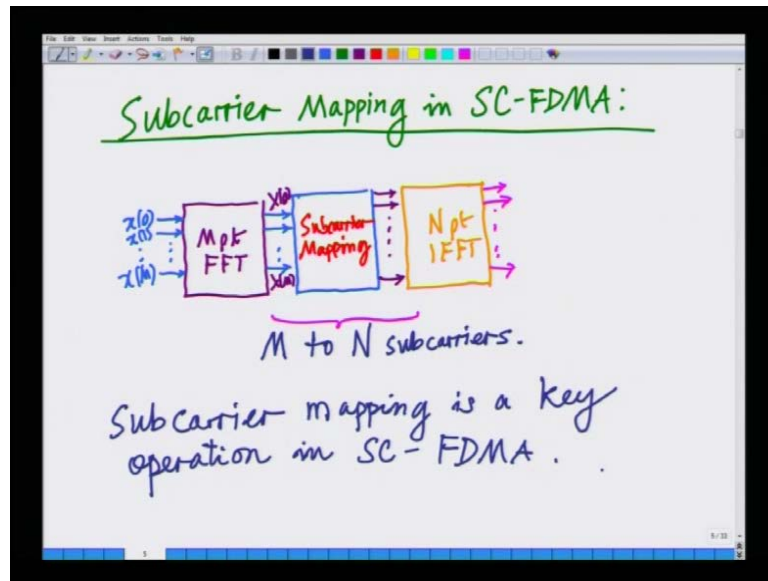 File Edit View Insert Actions Tools Help
Subcarrier Mapping in SC-FDMA:
x(0)
x(1)
x(m)
M pt
FFT
X(0)
X(m)
Subcarrier
Mapping
N pt
IFFT
M to N subcarriers.
Subcarrier mapping is a key
operation in SC-FDMA.
5